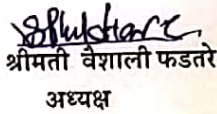 श्रीमती वैशाली फडतरे
अध्यक्ष